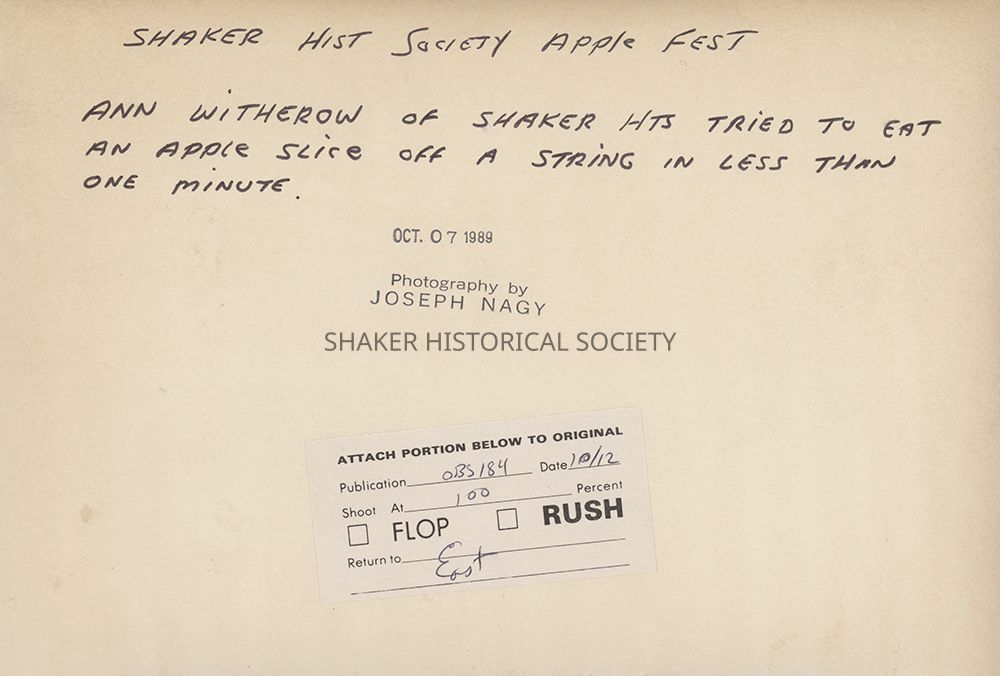 SHAKER HIST SOCIETY APPLE FEST
ANN WITHEROW OF SHAKER HTS TRIED TO EAT
AN APPLE SLICE OFF A STRING IN LESS THAN
ONE MINUTE.
OCT. 07 1989
Photography by
JOSEPH NAGY
SHAKER HISTORICAL SOCIETY
ATTACH PORTION BELOW TO ORIGINAL
Publication OBS184 Date 10/12
Shoot At 100 Percent
FLOP RUSH
Return to East